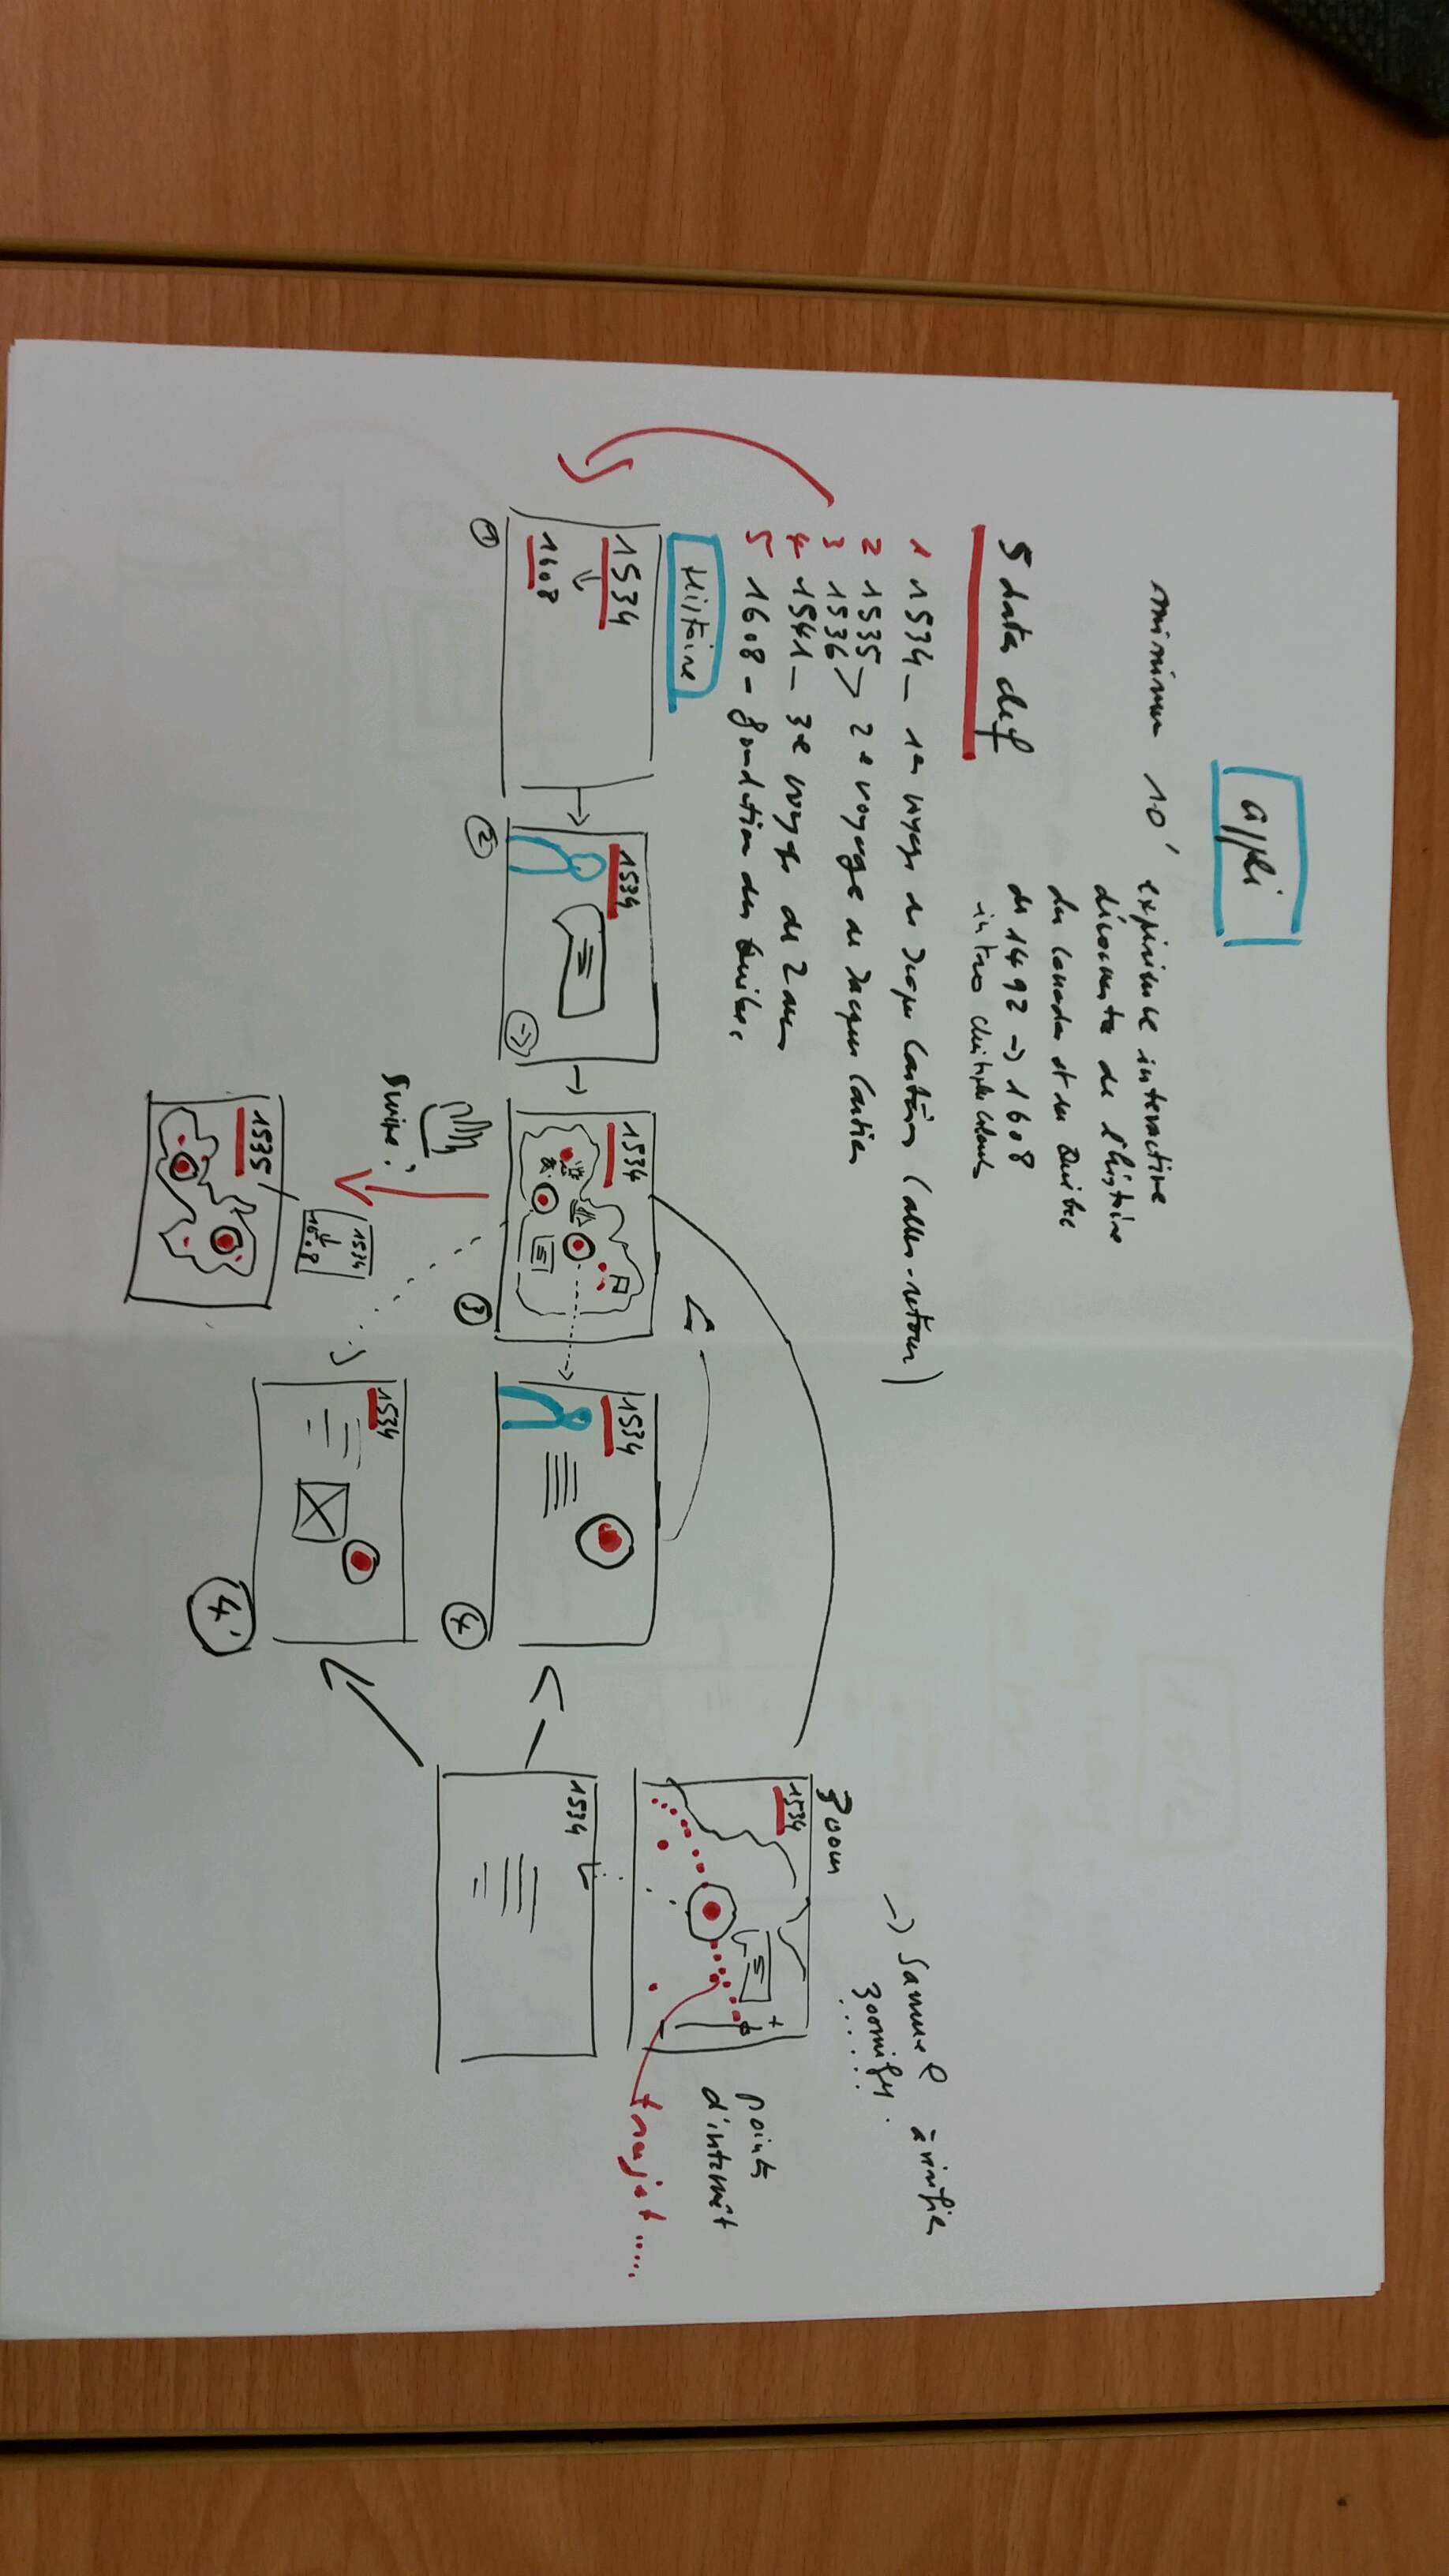 appli
minimum 10' expérience interactive
découverte de l'histoire
du Canada et du Québec
de 1492 -> 1608
intro
5 dates def
1 1534 - 1er voyage de Jacques Cartier (aller-retour)
2 1535
3 1536 > 2e voyage de Jacques Cartier
4 1541 - 3e voyage de 2 ans
5 1608 - fondation du Québec
Histoire
1534
1608
1
1534
2
1534
3
1534
4
Swipe ?
1534
1608
1535
1534
4'
Zoom
-> Samuel à vérifier
zoomify.
1534
+
points
d'intérêt
trajet .....
1534